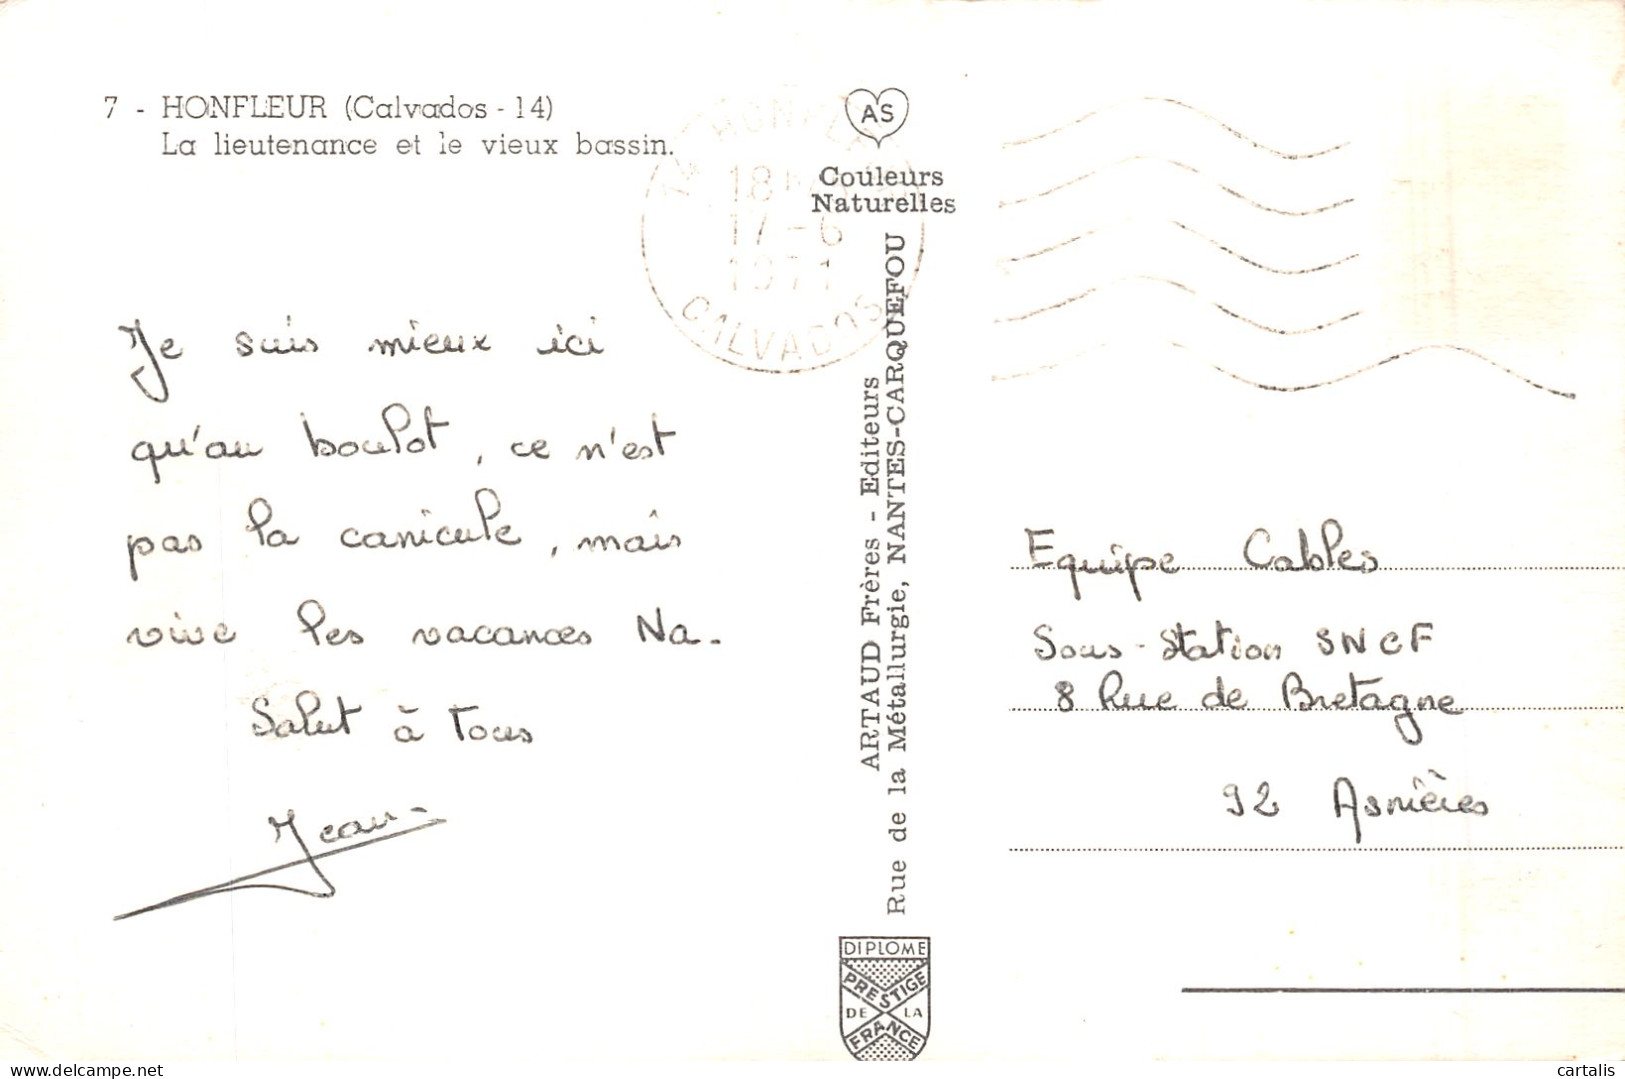 7 - HONFLEUR (Calvados - 14)
La lieutenance et le vieux bassin.
14 HONFLEUR
18H
17-6
1971
CALVADOS
AS
Couleurs
Naturelles
ARTAUD Frères - Editeurs
Rue de la Métallurgie, NANTES-CARQUEFOU
Je suis mieux ici
qu'au boulot, ce n'est
pas la canicule, mais
vive les vacances Na.
Salut à tous
Jean
Equipe Cables
Sous-Station SNCF
8 Rue de Bretagne
92 Asnières
DIPLOME
PRESTIGE
DE LA
FRANCE
cartalis